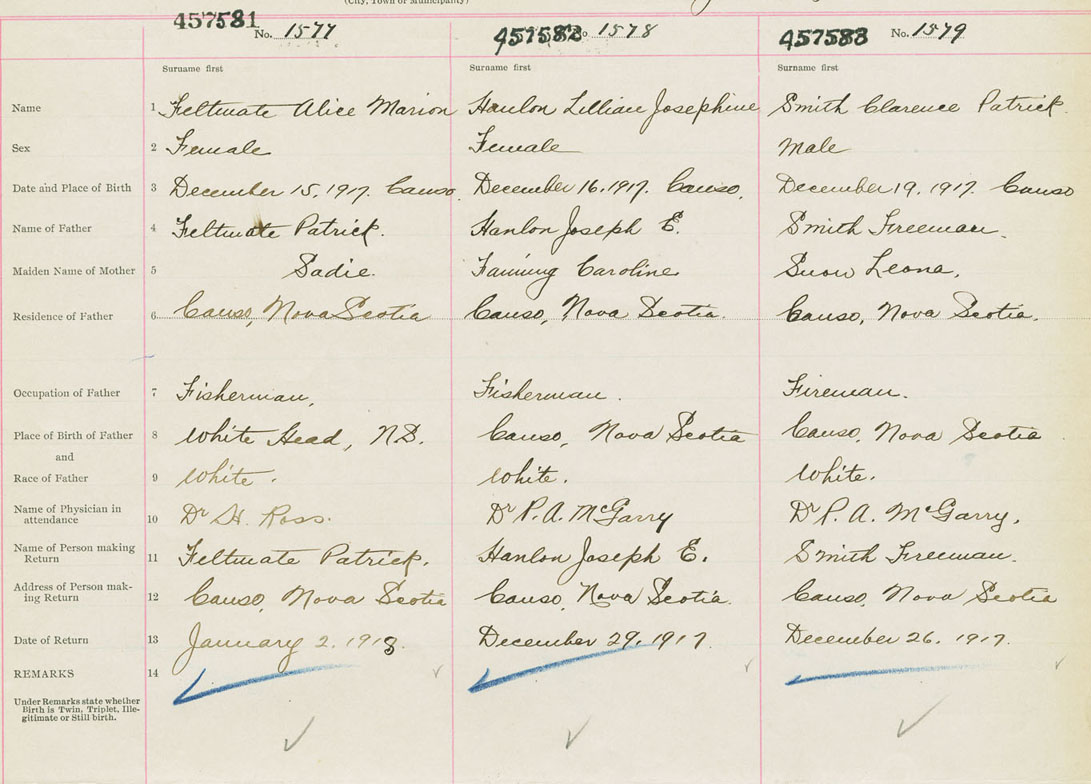 (City, Town or Municipality)
457581 No. 1577 457582 No 1578 457583 No. 1579
Surname first Surname first Surname first
Name 1 Feltmate Alice Marion Hanlon Lillian Josephine Smith Clarence Patrick.
Sex 2 Female Female Male
Date and Place of Birth 3 December 15, 1917. Canso. December 16, 1917. Canso. December 19, 1917. Canso
Name of Father 4 Feltmate Patrick. Hanlon Joseph E. Smith Freeman.
Maiden Name of Mother 5 Sadie. Fanning Caroline Snow Leona.
Residence of Father 6 Canso, Nova Scotia Canso, Nova Scotia. Canso, Nova Scotia.
Occupation of Father 7 Fisherman, Fisherman. Fireman.
Place of Birth of Father 8 White Head, N.S. Canso, Nova Scotia Canso, Nova Scotia
and
Race of Father 9 White. White. White.
Name of Physician in
attendance 10 Dr Ross. Dr P. A. McGarry Dr P. A. McGarry.
Name of Person making
Return 11 Feltmate Patrick. Hanlon Joseph E. Smith Freeman.
Address of Person mak-
ing Return 12 Canso, Nova Scotia Canso, Nova Scotia. Canso, Nova Scotia
Date of Return 13 January 2, 1918. December 29, 1917. December 26, 1917.
REMARKS 14
Under Remarks state whether
Birth is Twin, Triplet, Ille-
gitimate or Still birth.